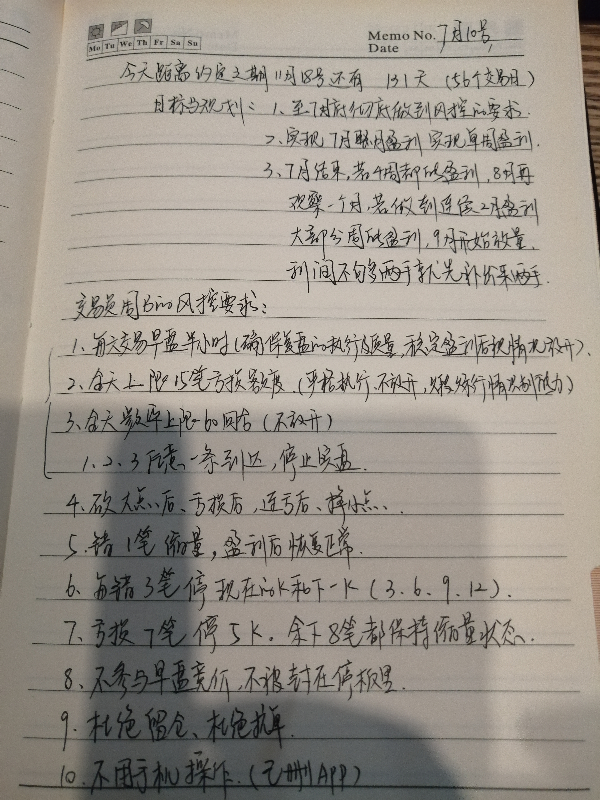 Memo No.
Mo Tu We Th Fr Sa Su
Date 7月10号
今天距离约定之期11月18号还有 131天 (56个交易日)
目标与规划: 1、至7月底彻底做到风控的要求.
2、实现7月单月盈利 实现单周盈利.
3、7月结束, 若4周都能盈利, 8月再
观察一个月, 若做到连续2月盈利
大部分周能盈利, 9月开始放量,
利润不够多两手就先补出来两手.
交易员周的风控要求:
1、每天交易早盘半小时(确保复盘的执行及质量, 稳定盈利后视情况放开).
2、每天上限15笔亏损额度. (严格执行, 不放开, 能力)
3、每天数率上限60回合 (不放开)
1、2、3任意一条到达, 停止实盘.
4. 砍大点后、亏损后, 连亏后、挣小点.
5. 错1笔缩量, 盈利后恢复正常.
6、每错3笔停现在的K和下一K (3. 6. 9. 12).
7、亏损7笔停5K. 余下8笔都保持缩量状态.
8、不参与早盘竞价, 不被封在停板里.
9. 杜绝留仓、杜绝扛单.
10. 不用手机操作. (已删APP)